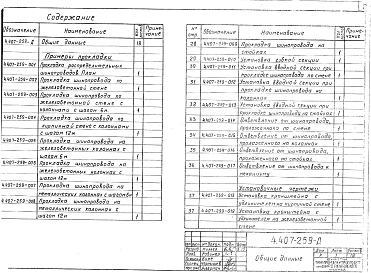 Содержание
Обозначение Наименование Примечание
4.407-259-Д Общие данные
Примеры прокладки
4.407-259-001 Прокладка распределительных
шинопроводов План
4.407-259-002 Прокладка шинопровода по
железобетонной стене
4.407-259-003 Прокладка шинопровода по
железобетонной стене с
колоннами с шагом 6м
4.407-259-004 Прокладка шинопровода по
кирпичной стене с колоннами
с шагом 12м
4.407-259-005 Прокладка шинопровода на
железобетонных колоннах с
шагом 6м
4.407-259-006 Прокладка шинопровода на
железобетонных колоннах с
шагом 12м
4.407-259-007 Прокладка шинопровода на
металлических колоннах с шагом 6м
4.407-259-008 Прокладка шинопровода на
металлических колоннах с
шагом 12м
Обозначение Наименование Примечание
28 4.407-259-009 Прокладка шинопровода на
стойках
29 4.407-259-010 Установка гибкой секции
30 4.407-259-011 Установка вводной секции при
прокладке шинопровода по стене
31 4.407-259-012 Установка вводной секции при
прокладке шинопровода на
колоннах
32 4.407-259-013 Установка вводной секции при
прокладке шинопровода на стойках
33 4.407-259-014 Ответвление от шинопровода,
проложенного по стене
34 4.407-259-015 Ответвление от шинопровода,
проложенного на колоннах
35 4.407-259-016 Ответвление от шинопровода,
проложенного на стойках
36 4.407-259-017 Ответвление от шинопровода к
Установочные чертежи
37 4.407-259-018 Установка кронштейна с
удлинителем на кирпичной стене
37 4.407-259-019 Установка кронштейна с
удлинителем на железобетонной
стене
4.407-259-Д
Общие данные